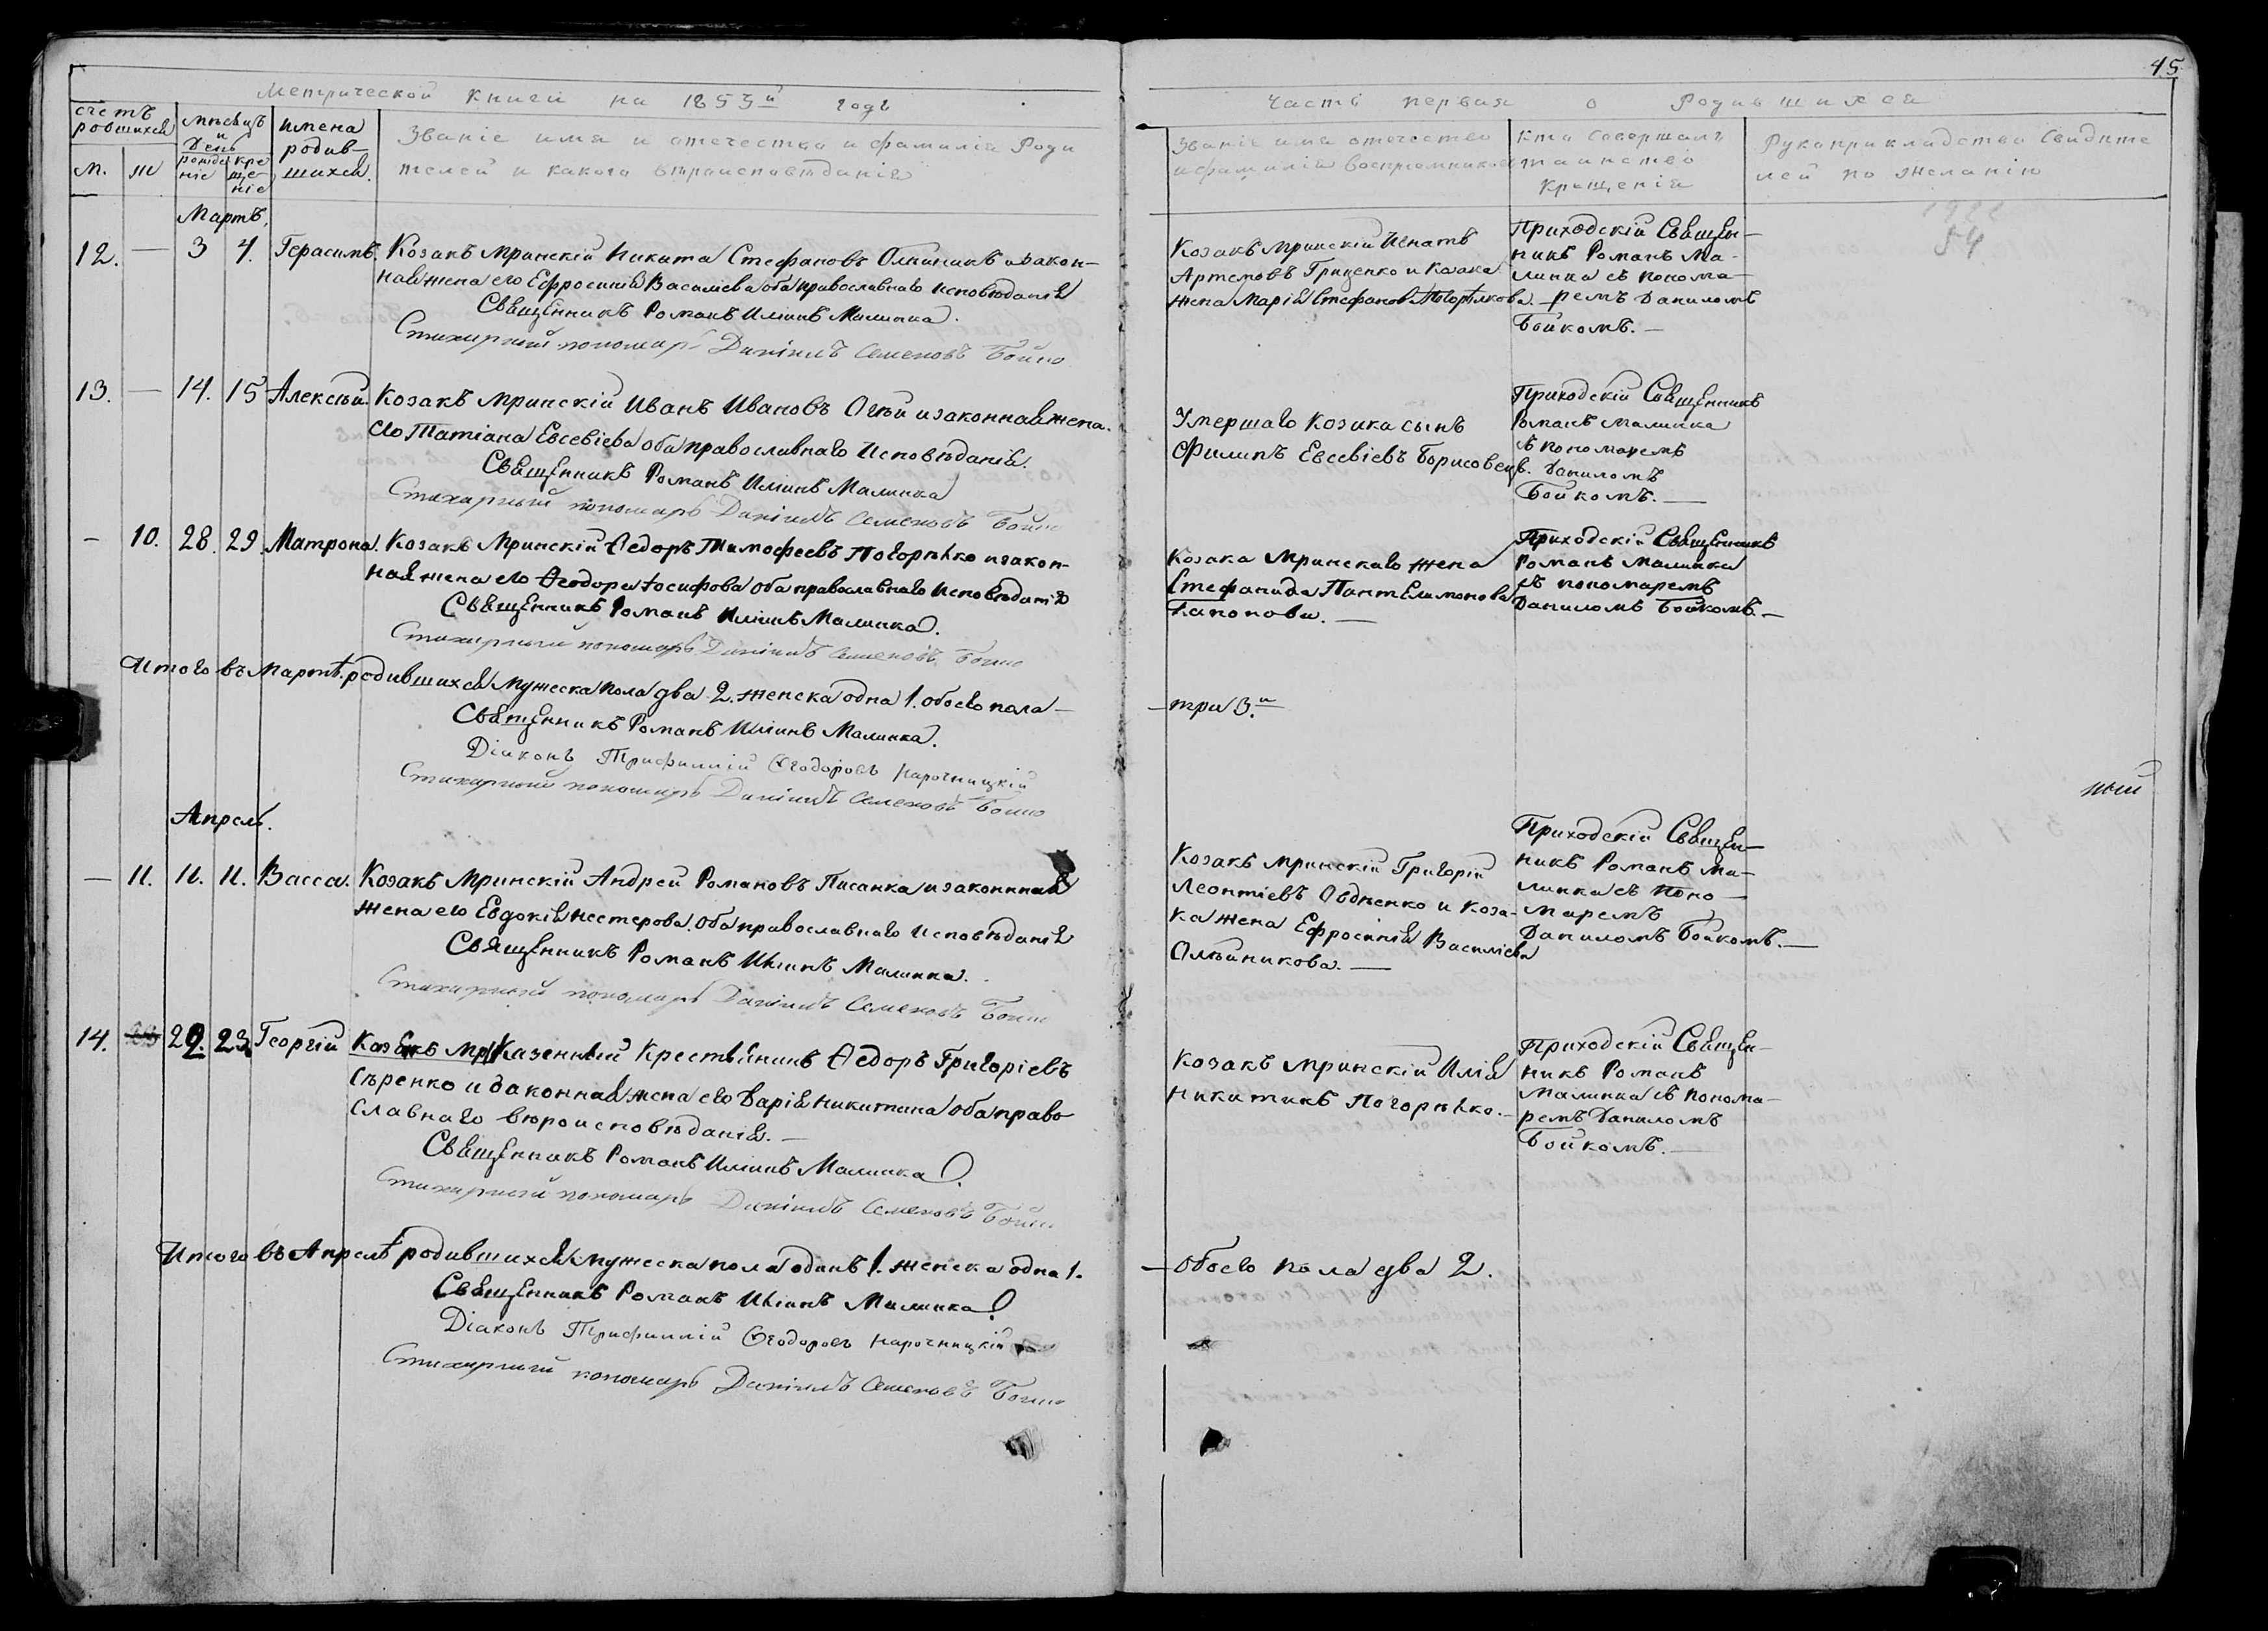 45
Метрической книги на 1853й годъ
счетъ родшихся
м. ж
мѣсяцъ и день
рожде ніе
кре ще- ніе
имена родив- шихся.
Званіе имя и отечество и фамилія Роди
телей и какого вѣроисповѣданія
Мартъ.
12. — 3 4. Герасимъ. Козакъ Мринскій Никита Стефановъ Олѣйникъ и закон-
ная жена его Ефросинія Василіева оба православнаго исповѣданія
Священникъ Романъ Иліинъ Малинка.
Стихарный пономарь Даніилъ Семеновъ Бойко
13. — 14. 15 Алексѣй. Козакъ Мринскій Иванъ Ивановъ Огѣй и законная жена
его Татіана Евсевіева оба православнаго исповѣданія.
Священникъ Романъ Иліинъ Малинка
Стихарный пономарь Даніилъ Семеновъ Бойко
— 10. 28. 29. Матрона. Козакъ Мринскій Ѳедоръ Тимофеевъ Погорѣлко и закон-
ная жена его Ѳеодора Іосифова оба православнаго исповѣданія
Священникъ Романъ Иліинъ Малинка.
Стихарный пономарь Даніилъ Семеновъ Бойко
Итого въ Мартѣ родившихся мужеска пола два 2. женска одна 1. обоего пола —
Священникъ Романъ Иліинъ Малинка.
Діаконъ Трифиллій Ѳеодоровъ Нарочницкій
Стихарный пономарь Даніилъ Семеновъ Бойко
Апрель.
— 11. 11. 11. Васса. Козакъ Мринскій Андрей Романовъ Писанка и законнная
жена его Евдокія Нестерова. оба православнаго исповѣданія
Священникъ Романъ Иліинъ Малинка.
Стихарный пономарь Даніилъ Семеновъ Бойко
14. 22. 23. Георгій Козакъ Мр Казенный Крестьянинъ Ѳедоръ Григоріевъ
Сѣренко и законная жена его Дарія Никитина оба право
славнаго вѣроисповѣданія. —
Священникъ Романъ Иліинъ Малинка.
Стихарный пономарь Даніилъ Семеновъ Бойко
Итого въ Апрелѣ родившихся мужеска пола одинъ 1. женска одна 1.
Священникъ Романъ Иліинъ Малинка
Діаконъ Трифиллій Ѳеодоровъ Нарочницкій
Стихарный пономарь Даніилъ Семеновъ Бойко
Часть первая о Родившихся
Званіе имя отечество
и фамилія воспріемниковъ
Кто совершалъ
таинство
крещенія
Рукоприкладство свидѣте
лей по желанію
54
Козакъ Мринскій Игнатъ
Артемовъ Гриценко и Козака
жена Марія Стефанова Погорѣлкова.
Приходскій Священ-
никъ Романъ Ма-
линка съ понома-
ремъ Даниломъ
Бойкомъ. —
Умершаго Козака сынъ
Филипъ Евсевіевъ Борисовецъ.
Приходскій Священникъ
Романъ Малинка
съ пономаремъ
Даниломъ
Бойкомъ. —
Козака Мринскаго жена
Стефанида Пантелимонова
Капонова. —
Приходскій Священникъ
Романъ Малинка
съ пономаремъ
Даниломъ Бойкомъ. —
— три 3.и
ный
Козакъ Мринскій Григорій
Леонтіевъ Овдѣенко и Коза-
ка жена Ефросинія Василіева
Олѣйникова. —
Приходскій Священ-
никъ Романъ Ма-
линка съ Поно-
маремъ
Даниломъ Бойкомъ. —
Козакъ Мринскій Илія
Никитинъ Погорѣлко. —
Приходскій Священ-
никъ Романъ
Малинка съ понома-
ремъ Даниломъ
Бойкомъ. —
— обоего пола два 2.